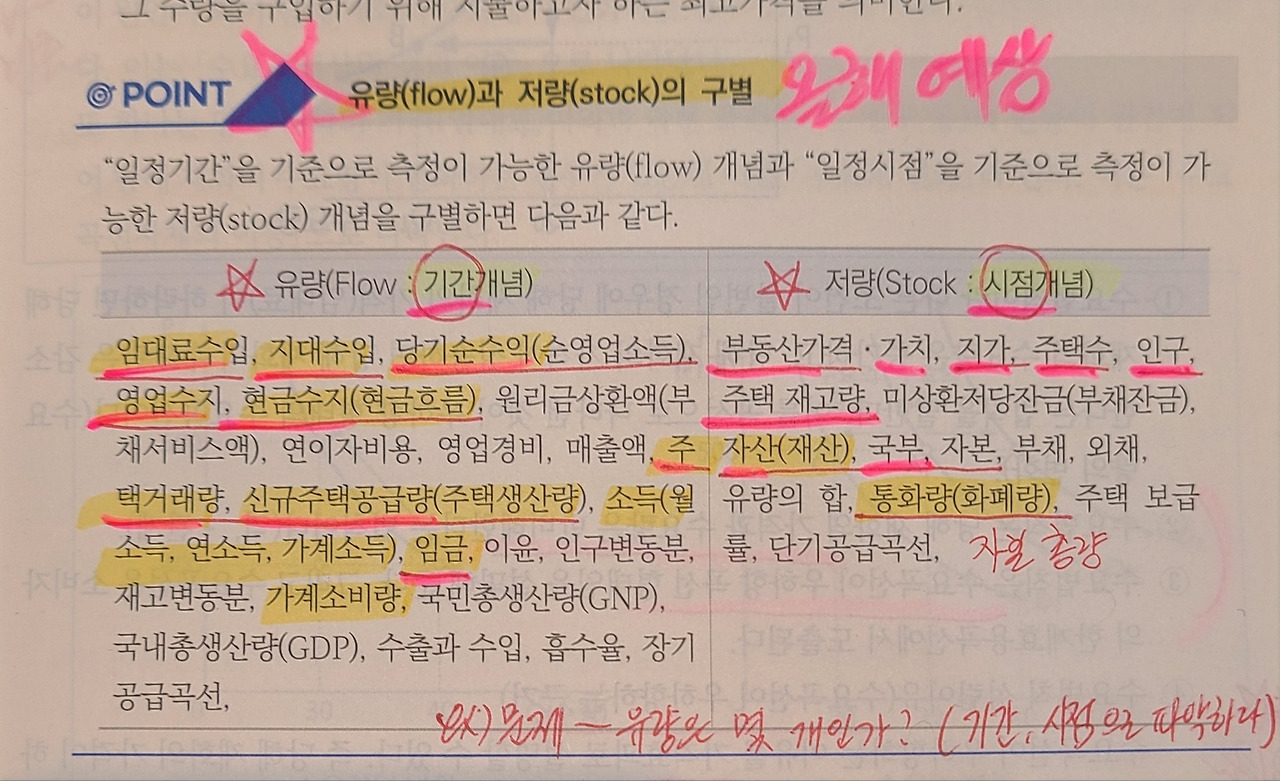 그 수량을 구입하기 위해 지불하고자 하는 최고가격을 의미한다.
POINT 유량(flow)과 저량(stock)의 구별 올해 예상
“일정기간”을 기준으로 측정이 가능한 유량(flow) 개념과 “일정시점”을 기준으로 측정이 가
능한 저량(stock) 개념을 구별하면 다음과 같다.
유량(Flow : 기간개념)
임대료수입, 지대수입, 당기순수익(순영업소득),
영업수지, 현금수지(현금흐름), 원리금상환액(부
채서비스액), 연이자비용, 영업경비, 매출액, 주
택거래량, 신규주택공급량(주택생산량), 소득(월
소득, 연소득, 가계소득), 임금, 이윤, 인구변동분,
재고변동분, 가계소비량, 국민총생산량(GNP),
국내총생산량(GDP), 수출과 수입, 흡수율, 장기
공급곡선,
저량(Stock : 시점개념)
부동산가격, 가치, 지가, 주택수, 인구,
주택 재고량, 미상환저당잔금(부채잔금),
자산(재산), 국부, 자본, 부채, 외채,
유량의 합, 통화량(화폐량), 주택 보급
률, 단기공급곡선,
총량
문제 - 유량은 몇 개인가? (기간, 시점으로 파악하라)